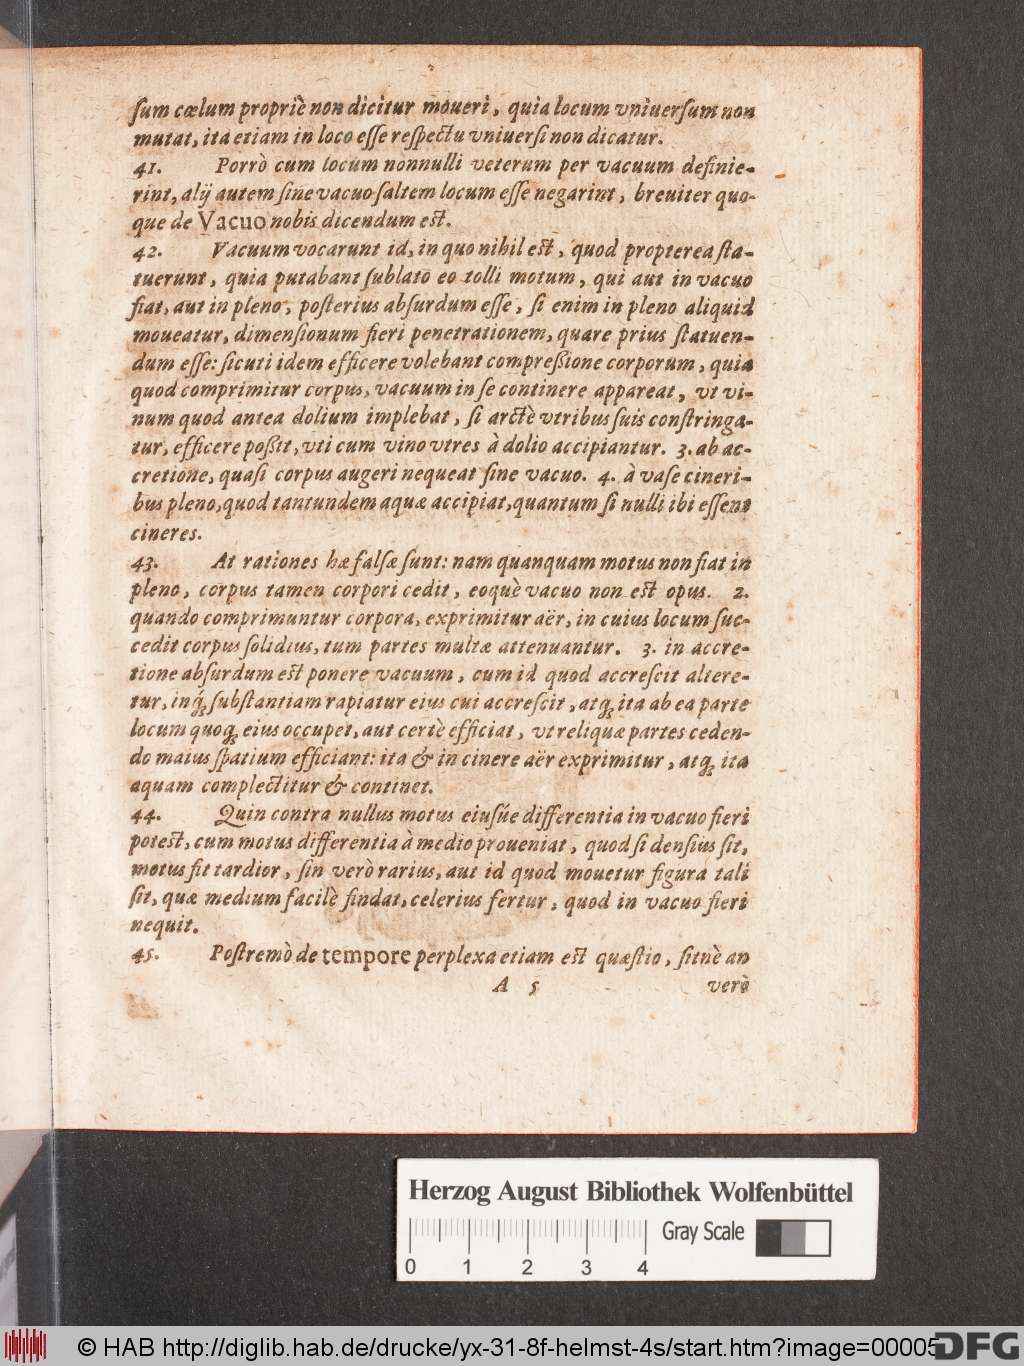 ſum cœlum propriè non dicitur moueri, quia locum vniuerſum non
mutat, ita etiam in loco eſſe reſpectu vniuerſi non dicatur.
41. Porrò cum locum nonnulli veterum per vacuum definie-
rint, alij autem ſine vacuo ſaltem locum eſſe negarint, breuiter quo-
que de Vacuo nobis dicendum est.
42. Vacuum vocarunt id, in quo nihil est, quod propterea ſta-
tuerunt, quia putabant ſublato eo tolli motum, qui aut in vacuo
fiat, aut in pleno, poſterius abſurdum eſſe, ſi enim in pleno aliquid
moueatur, dimenſionum fieri penetrationem, quare prius ſtatuen-
dum eſſe: ſicuti idem efficere volebant compreßione corporum, quia
quod comprimitur corpus, vacuum in ſe continere appareat, vt vi-
num quod antea dolium implebat, ſi arctè vtribus ſuis conſtringa-
tur, efficere poßit, vti cum vino vtres à dolio accipiantur. 3. ab ac-
cretione, quaſi corpus augeri nequeat ſine vacuo. 4. à vaſe cineri-
bus pleno, quod tantundem aquæ accipiat, quantum ſi nulli ibi eſſent
cineres.
43. At rationes hæ falſæ ſunt: nam quanquam motus non fiat in
pleno, corpus tamen corpori cedit, eoquè vacuo non est opus. 2.
quando comprimuntur corpora, exprimitur aër, in cuius locum ſuc-
cedit corpus ſolidius, tum partes multæ attenuantur. 3. in accre-
tione abſurdum est ponere vacuum, cum id quod accreſcit altere-
tur, inq́ꝫ ſubſtantiam rapiatur eius cui accreſcit, atqꝫ ita ab ea parte
locum quoqꝫ eius occupet, aut certè efficiat, vt reliquæ partes ceden-
do maius ſpatium efficiant: ita & in cinere aër exprimitur, atqꝫ ita
aquam complectitur & continet.
44. Quin contra nullus motus eiuſúe differentia in vacuo fieri
potest, cum motus differentia à medio proueniat, quod ſi denſius ſit,
motus fit tardior, ſin verò rarius, aut id quod mouetur figura tali
ſit, quæ medium facilè findat, celerius fertur, quod in vacuo fieri
nequit.
45. Poſtremò de tempore perplexa etiam est quæſtio, ſitnè an
A 5 verò
Herzog August Bibliothek Wolfenbüttel
Gray Scale
0 1 2 3 4
© HAB http://diglib.hab.de/drucke/yx-31-8f-helmst-4s/start.htm?image=00005
DFG